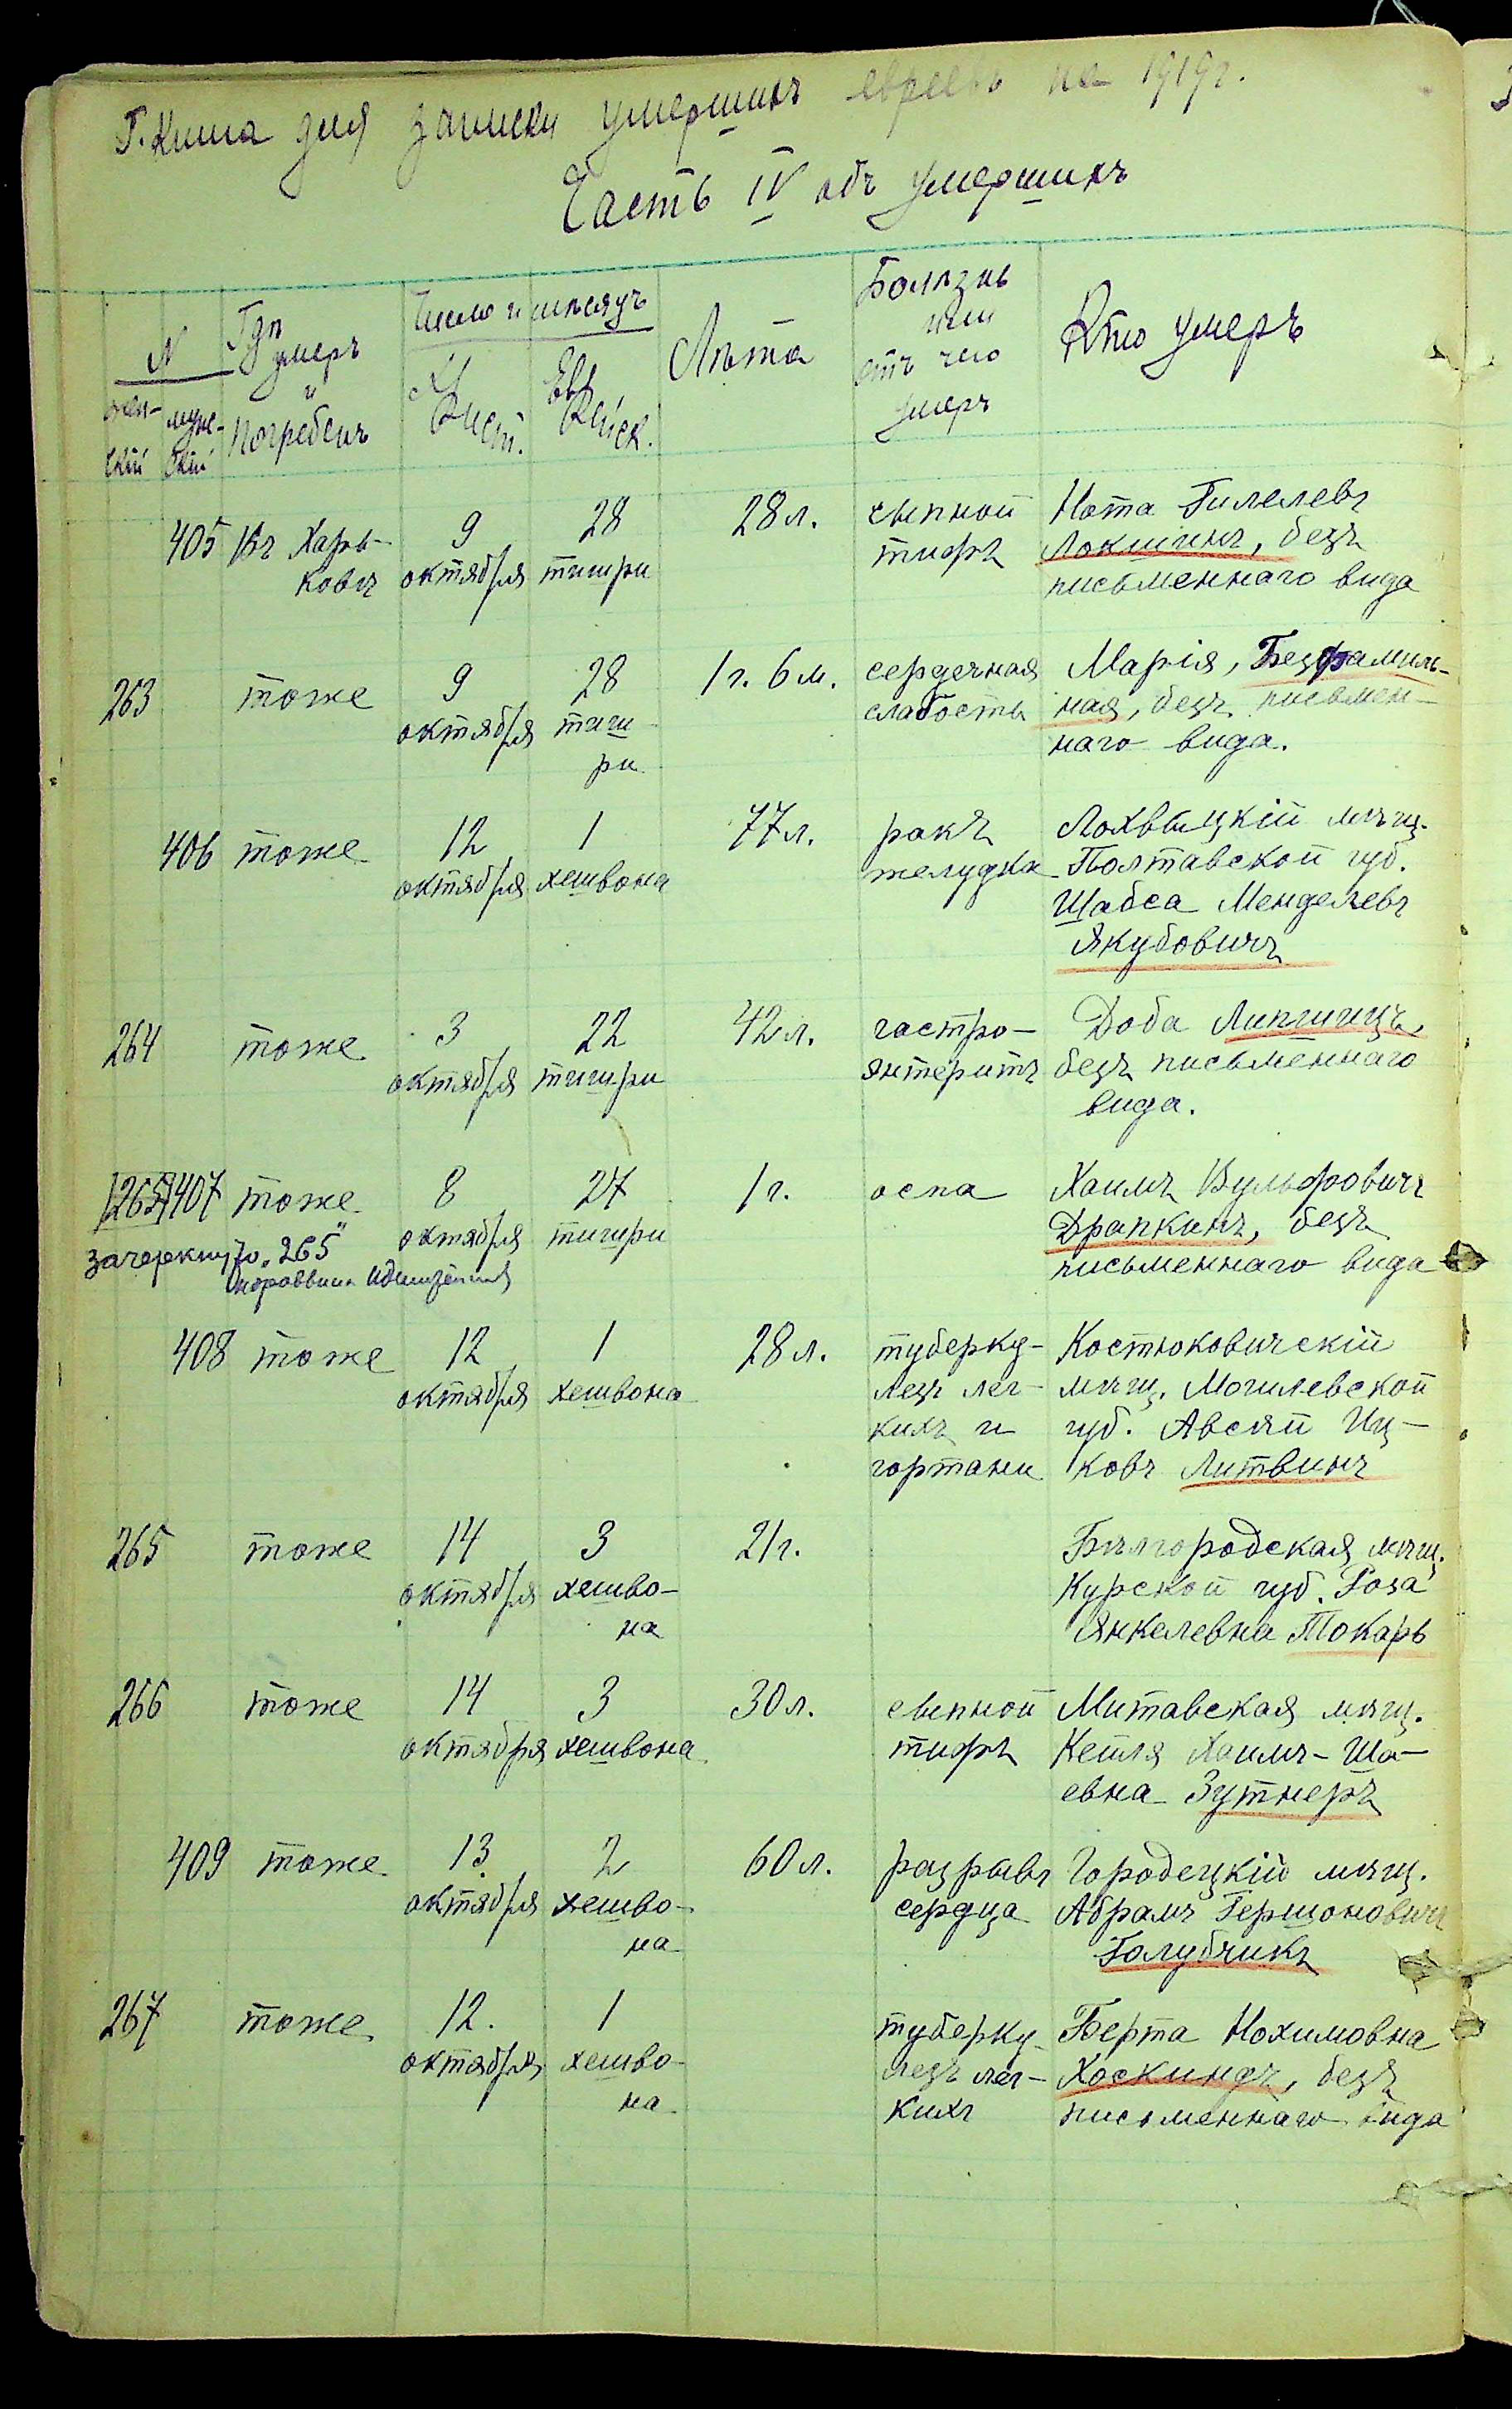 Книга для записи умершихъ евреевъ на 1919г.
Часть IV объ умершихъ
N
жен-
скій
муж-
ской
Гдѣ
умеръ
и
погребенъ
Число и мѣсяцъ
Христ.
Еврейск.
Лѣта
Болѣзнь
или
отъ чего
умеръ
Кто умеръ
405 Въ Харь- 9 28 28 л. сыпной Нота Гилелевъ
ковѣ октября тишри тифъ Локшинъ, безъ
письменнаго вида
263 тоже 9 28 1 г. 6 м. сердечная Марія, Безфамиль-
октября тиш слабость ная, безъ письмен-
ри наго вида.
406 тоже 12 1 77 л. ракъ Лохвыцкій мѣщ.
октября хешвона желудка Полтавской губ.
Шабса Менделевъ
Якубовичъ
264 тоже 3 22 42 л. гастро- Доба Липшицъ,
октября тишри энтеритъ безъ письменнаго
вида.
265 407 тоже 8 27 1 г. оспа Хаимъ Вульфовичъ
зачеркнуто „265" октября тишри Драпкинъ, безъ
письменнаго вида
408 тоже 12 1 28 л. туберку- Костюковичскій
октября хешвона лезъ лег- мѣщ. Могилевской
кихъ и губ. Авсѣй Иц-
гортани ковъ Литвинъ
265 тоже 14 3 21 г. Бѣлгородская мѣщ.
октября хешво- Курской губ. Роза
на Янкелевна Токарь
266 тоже 14 3 30 л. сыпной Митавская мѣщ.
октября хешвона тифъ Хаимъ-Ша-
евна Зутнеръ
409 тоже 13 2 60 л. разрывъ Городецкій мѣщ.
октября хешво- сердца Абрамъ Гершоновичъ
на Голубчикъ
267 тоже 12. 1 туберку- Берта Нохимовна
октября хешво- лезъ лег- Хаскиндъ, безъ
на кихъ письменнаго вида